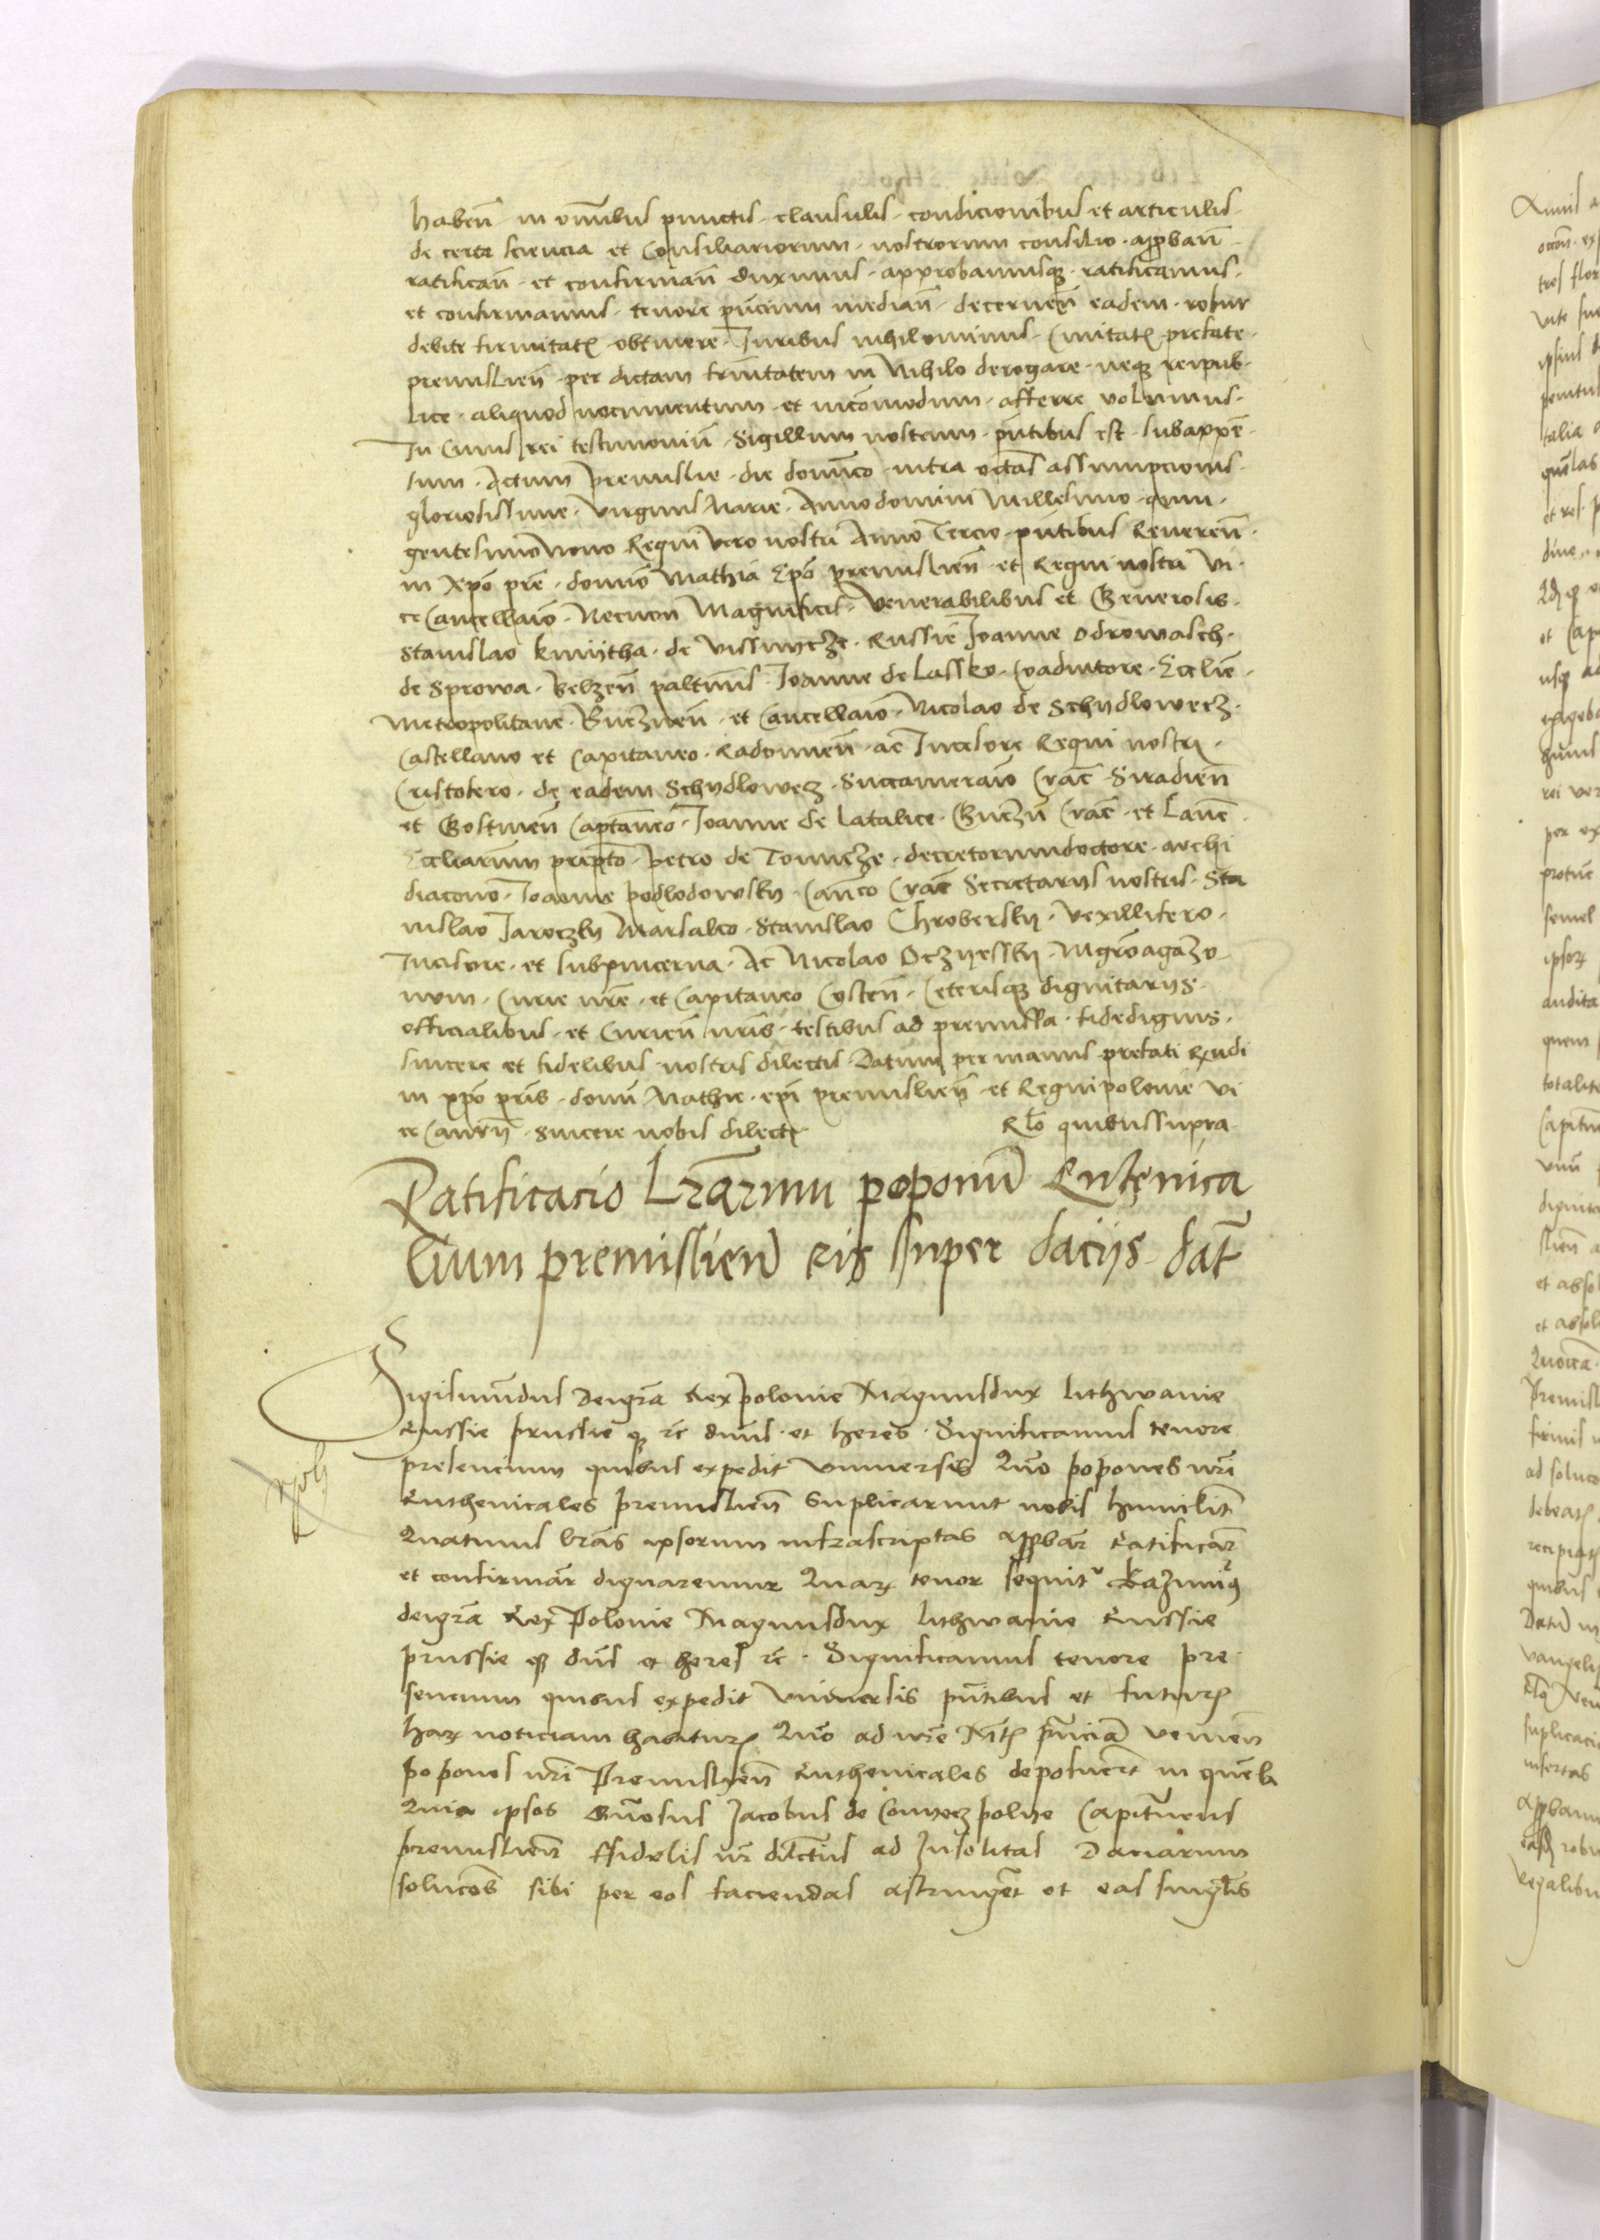 habeñ in om̃ibus punctis clausulis condicionibus et articulis
de certa sciencia et Consiliariorum nostrorum consilio approbañ
ratificañ et confirmañ duximus approbamusq3 ratificamus
et confirmamus tenore pñcium mediañ decerneñ eadem robur
debite firmitatꝭ obtinere Juribus nihilominus Civitatꝭ prefate
premislieñ per dictam in Nihilo derogare neq3 reipub
lice aliquod nocumentum et incõmodum afferre volumus
In Cuius rei testimoniũ Sigillum nostrum pñtibus est subappẽ
sum Actum Premislie die domĩco intra octãs assumpcionis
gloriosissime virginis Marie Anno domini Millesimo quin
gentesimo Nono Regni vero nostri Anno Tercio pñtibus Reuereñ
in Xpõ pr̃e domĩo Mathia Epõ premislieñ et Regni nostri vi
ce Cancellario Necnon Magnificis Venerabilibus et Generosis
Stanislao kmijtha de vissnycze Russie Joanne Odrowasch
de Sprowa Belzeñ paltinis Joanne de Lassko Coadiutore Ecclie
Metropolitane Gneznen̄ et Cancellario Nicolao de Schydlowecz
Castellano et Capitaneo Radomieñ ac Incisore Regni nostri
Cristofero de eadem Schydlowecz Succamerario Crac̃ Siradieñ
et Gostineñ Captaneo Joanne de Latalice Gneznẽ Crac̃ et Lanc̃
ccliarum prepto Petro de Tomicze decretorum doctore archi
diacono Joanne podlodowsky Canco Crac̃ Secretarijs nostris Sta
nislao Jaroczky Marsalco Stanislao Chrobersky vexillifero
Incisore et subpincerna Ac Nicolao Oczyessky Mgro agazo
num Curie nr̃e et Capitaneo Costeñ Ceterisq3 dignitarijs
officialibus et Curieñ nr̃is testibus ad premissa fidedignis
sincere et fidelibus nostris dilectis Datum per manus prefati Rndi
in xpõ pr̃is domĩ Mathie ep̃i premislieñ et Regni polonie vi
ce Cancrij sincere nobis dilectꝭ Rlõ quibus supra
Ratificacio Lr̃arum poponũ Rutenica
lium premislieñ eis super dacijs dat̃
Sigismundus dei gr̃a Rex polonie Magnus dux lithwanie
Russie prussie q3 rc̃ dñus et heres Significamus tenore
presencium quibus expedit vniuersis Quõ popones nr̃i
Ruthenicales premislieñ suplicarunt nobis humilitr̃
Quatinus lr̃as ipsorum infrascriptas appbar̃ Ratificar̃
et confirmar̃ dignaremur Quarꝝ tenor sequitr̃ kazimirꝰ
dei gr̃a Rex Polonie Magnus dux lithwanie Russie
prussie q3 dñs et heres rc̃ Significamus tenore pre
sencium quibus expedit vniuersis pñtibus et futurꝭ
harꝝ noticiam habiturꝭ Quõ ad nr̃e Mtꝭ pñciã venieñ
popones nr̃i Premislieñ Ruthenicales deposuer̃t in querela
Quia ipsos Gñosus Jacobus de Conyeczpolye Capitaneus
premislieñ ffidelis nr̃ dilctus ad Insolitas Daciarum
solucões sibi per eos faciendas astringer̃t et eas singlis